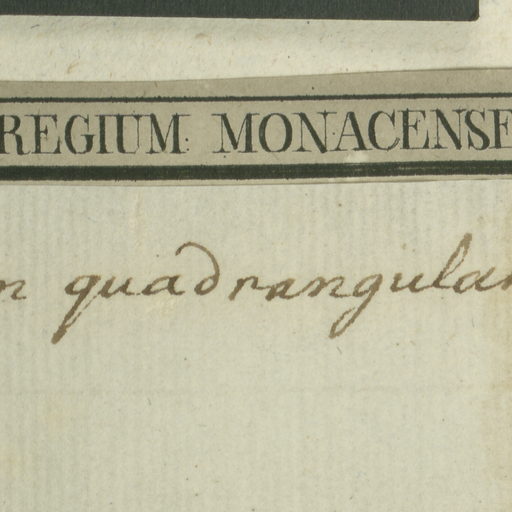 REGIUM MONACENSE
n quadrangular